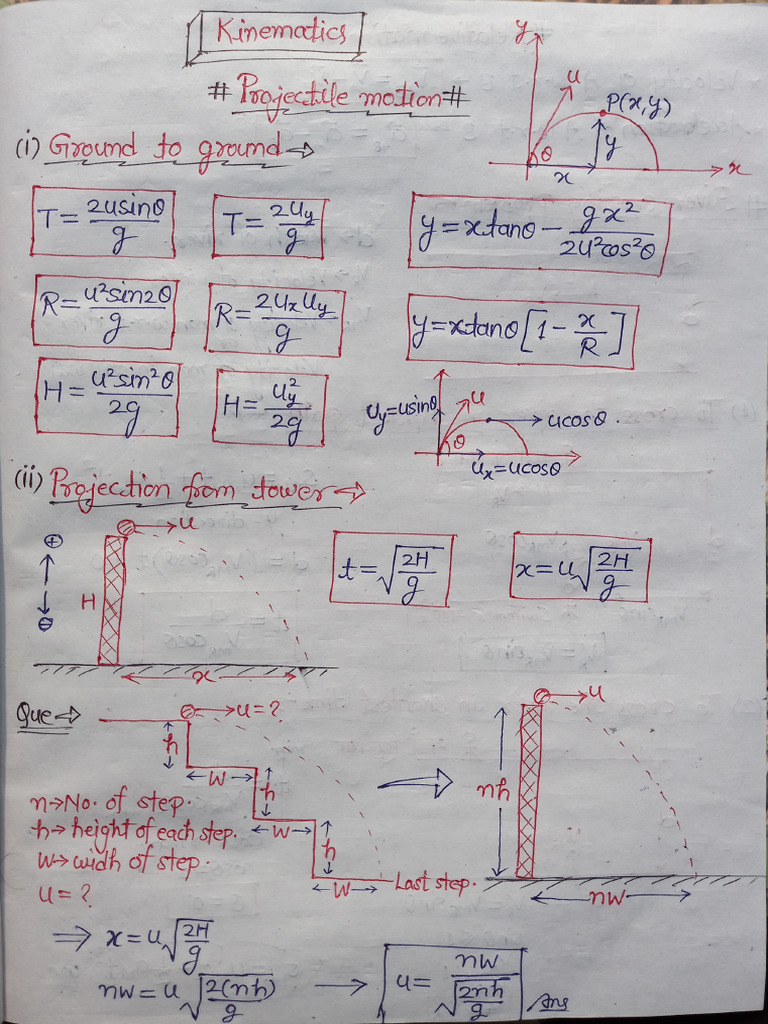 Kinematics
# Projectile motion #
y
u
P(x,y)
θ
y
x
x
(i) Ground to ground →
T = 2usinθ/g
T = 2u_y/g
y = xtanθ − gx²/2u²cos²θ
R = u²sin2θ/g
R = 2u_x u_y/g
y = xtanθ [1 − x/R]
H = u²sin²θ/2g
H = u_y²/2g
u_y = usinθ
u
ucosθ
θ
u_x = ucosθ
(ii) Projection from tower →
u
⊕
⊖
H
x
t = √(2H/g)
x = u√(2H/g)
Que →
u = ?
h
w
h
w
h
w
Last step.
u
nh
nw
n → No. of step.
h → height of each step.
w → widh of step.
u = ?
⇒ x = u√(2H/g)
nw = u√(2(nh)/g) → u = nw/√(2nh/g) Ans